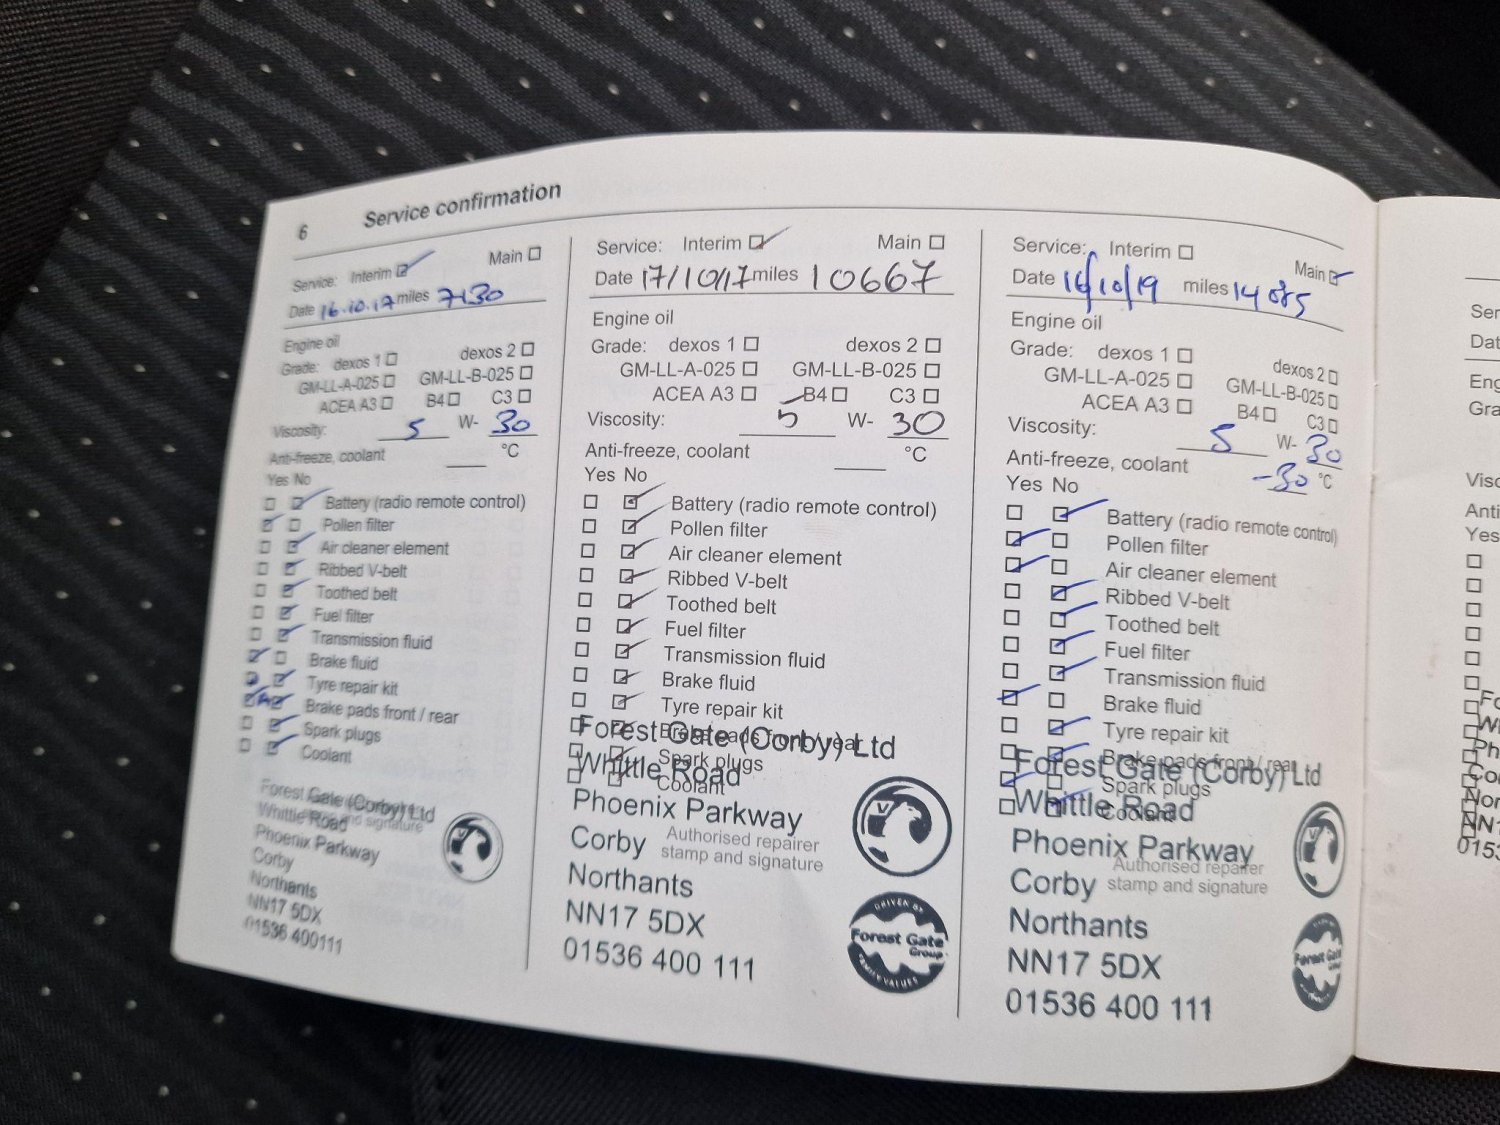 6 Service confirmation
Service: Interim Main
Date 16.10.17 miles 7130
Engine oil
Grade: dexos 1 dexos 2
GM-LL-A-025 GM-LL-B-025
ACEA A3 B4 C3
Viscosity: 5 W- 30
Anti-freeze, coolant °C
Yes No
Battery (radio remote control)
Pollen filter
Air cleaner element
Ribbed V-belt
Toothed belt
Fuel filter
Transmission fluid
Brake fluid
Tyre repair kit
Brake pads front / rear
Spark plugs
Coolant
Forest Gate (Corby) Ltd
Whittle Road
and signature
Phoenix Parkway
Corby
Northants
NN17 5DX
01536 400111
Service: Interim Main
Date 17/10/17 miles 10667
Engine oil
Grade: dexos 1 dexos 2
GM-LL-A-025 GM-LL-B-025
ACEA A3 B4 C3
Viscosity: 5 W- 30
Anti-freeze, coolant °C
Yes No
Battery (radio remote control)
Pollen filter
Air cleaner element
Ribbed V-belt
Toothed belt
Fuel filter
Transmission fluid
Brake fluid
Tyre repair kit
Brake pads front / rear
Forest Gate (Corby) Ltd
Spark plugs
Whittle Road
Coolant
Phoenix Parkway
Authorised repairer
Corby
stamp and signature
Northants
NN17 5DX
01536 400 111
DRIVEN BY
Forest Gate
Group
FAMILY VALUES
Service: Interim Main
Date 16/10/19 miles 14085
Engine oil
Grade: dexos 1 dexos 2
GM-LL-A-025 GM-LL-B-025
ACEA A3 B4 C3
Viscosity: 5 W- 30
Anti-freeze, coolant -30 °C
Yes No
Battery (radio remote control)
Pollen filter
Air cleaner element
Ribbed V-belt
Toothed belt
Fuel filter
Transmission fluid
Brake fluid
Tyre repair kit
Brake pads front / rear
Forest Gate (Corby) Ltd
Spark plugs
Whittle Road
Coolant
Phoenix Parkway
Authorised repairer
Corby
stamp and signature
Northants
NN17 5DX
01536 400 111
Forest Gate
Ser
Dat
Eng
Gra
Visc
Anti
Yes
Fo
Wh
Ph
Co
Nor
NN1
0153